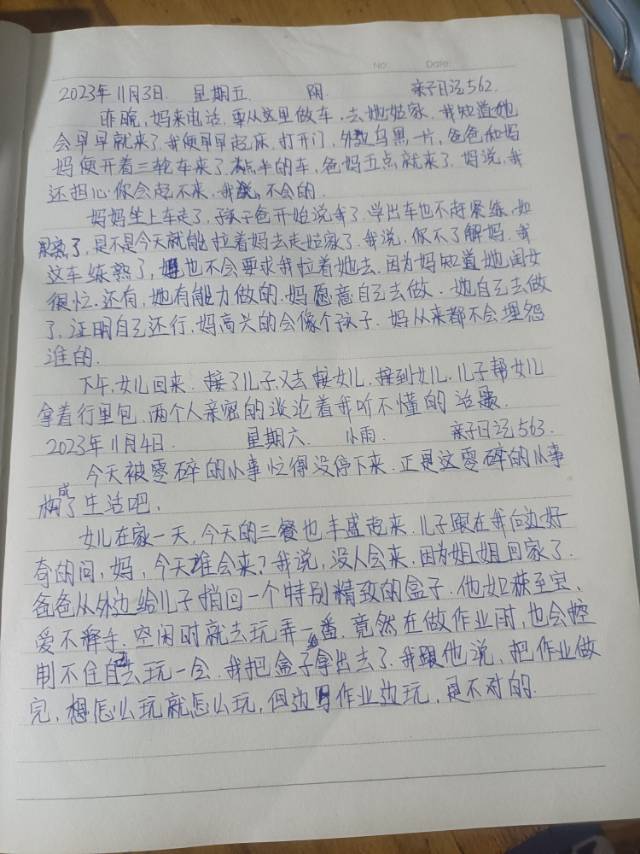 No. Date.
2023年11月3日. 星期五 阴 亲子日记562.
昨晚,妈来电话,要从这里做车,去她姑家.我知道她
会早早就来了.我便早早起床,打开门,外面乌黑一片,爸爸和妈
妈便开着三轮车来了.六点半的车,爸妈五点就来了.妈说,我
还担心你会起不来.我说,不会的.
妈妈坐上车走了,孩子爸开始说我了.学出车也不赶紧练,如
果熟了,是不是今天就能拉着妈去走姑家了.我说,你不了解妈.我
这车练熟了,妈也不会要求我拉着她去.因为妈知道她闺女
很忙.还有,她有能力做的.妈愿意自己去做.她自己去做
了,证明自己还行,妈高兴的会像个孩子.妈从来都不会埋怨
谁的.
下午,女儿回来.接了儿子,又去接女儿.接到女儿,儿子帮女儿
拿着行里包.两个人亲密的谈论着我听不懂的话题.
2023年11月4日. 星期六. 小雨. 亲子日记563.
今天被零碎的小事忙得没停下来.正是这零碎的小事
构成了生活吧.
女儿在家一天,今天的三餐也丰盛起来.儿子跟在我的边好
奇的问,妈,今天谁会来?我说,没人会来,因为姐姐回家了.
爸爸从外边给儿子捎回一个特别精致的盒子.他如获至宝,
爱不释手.空闲时就去玩弄一番.竟然在做作业时,也会控
制不住自去玩一会.我把盒子拿出去了.我跟他说,把作业做
完,想怎么玩就怎么玩,但边写作业边玩,是不对的.